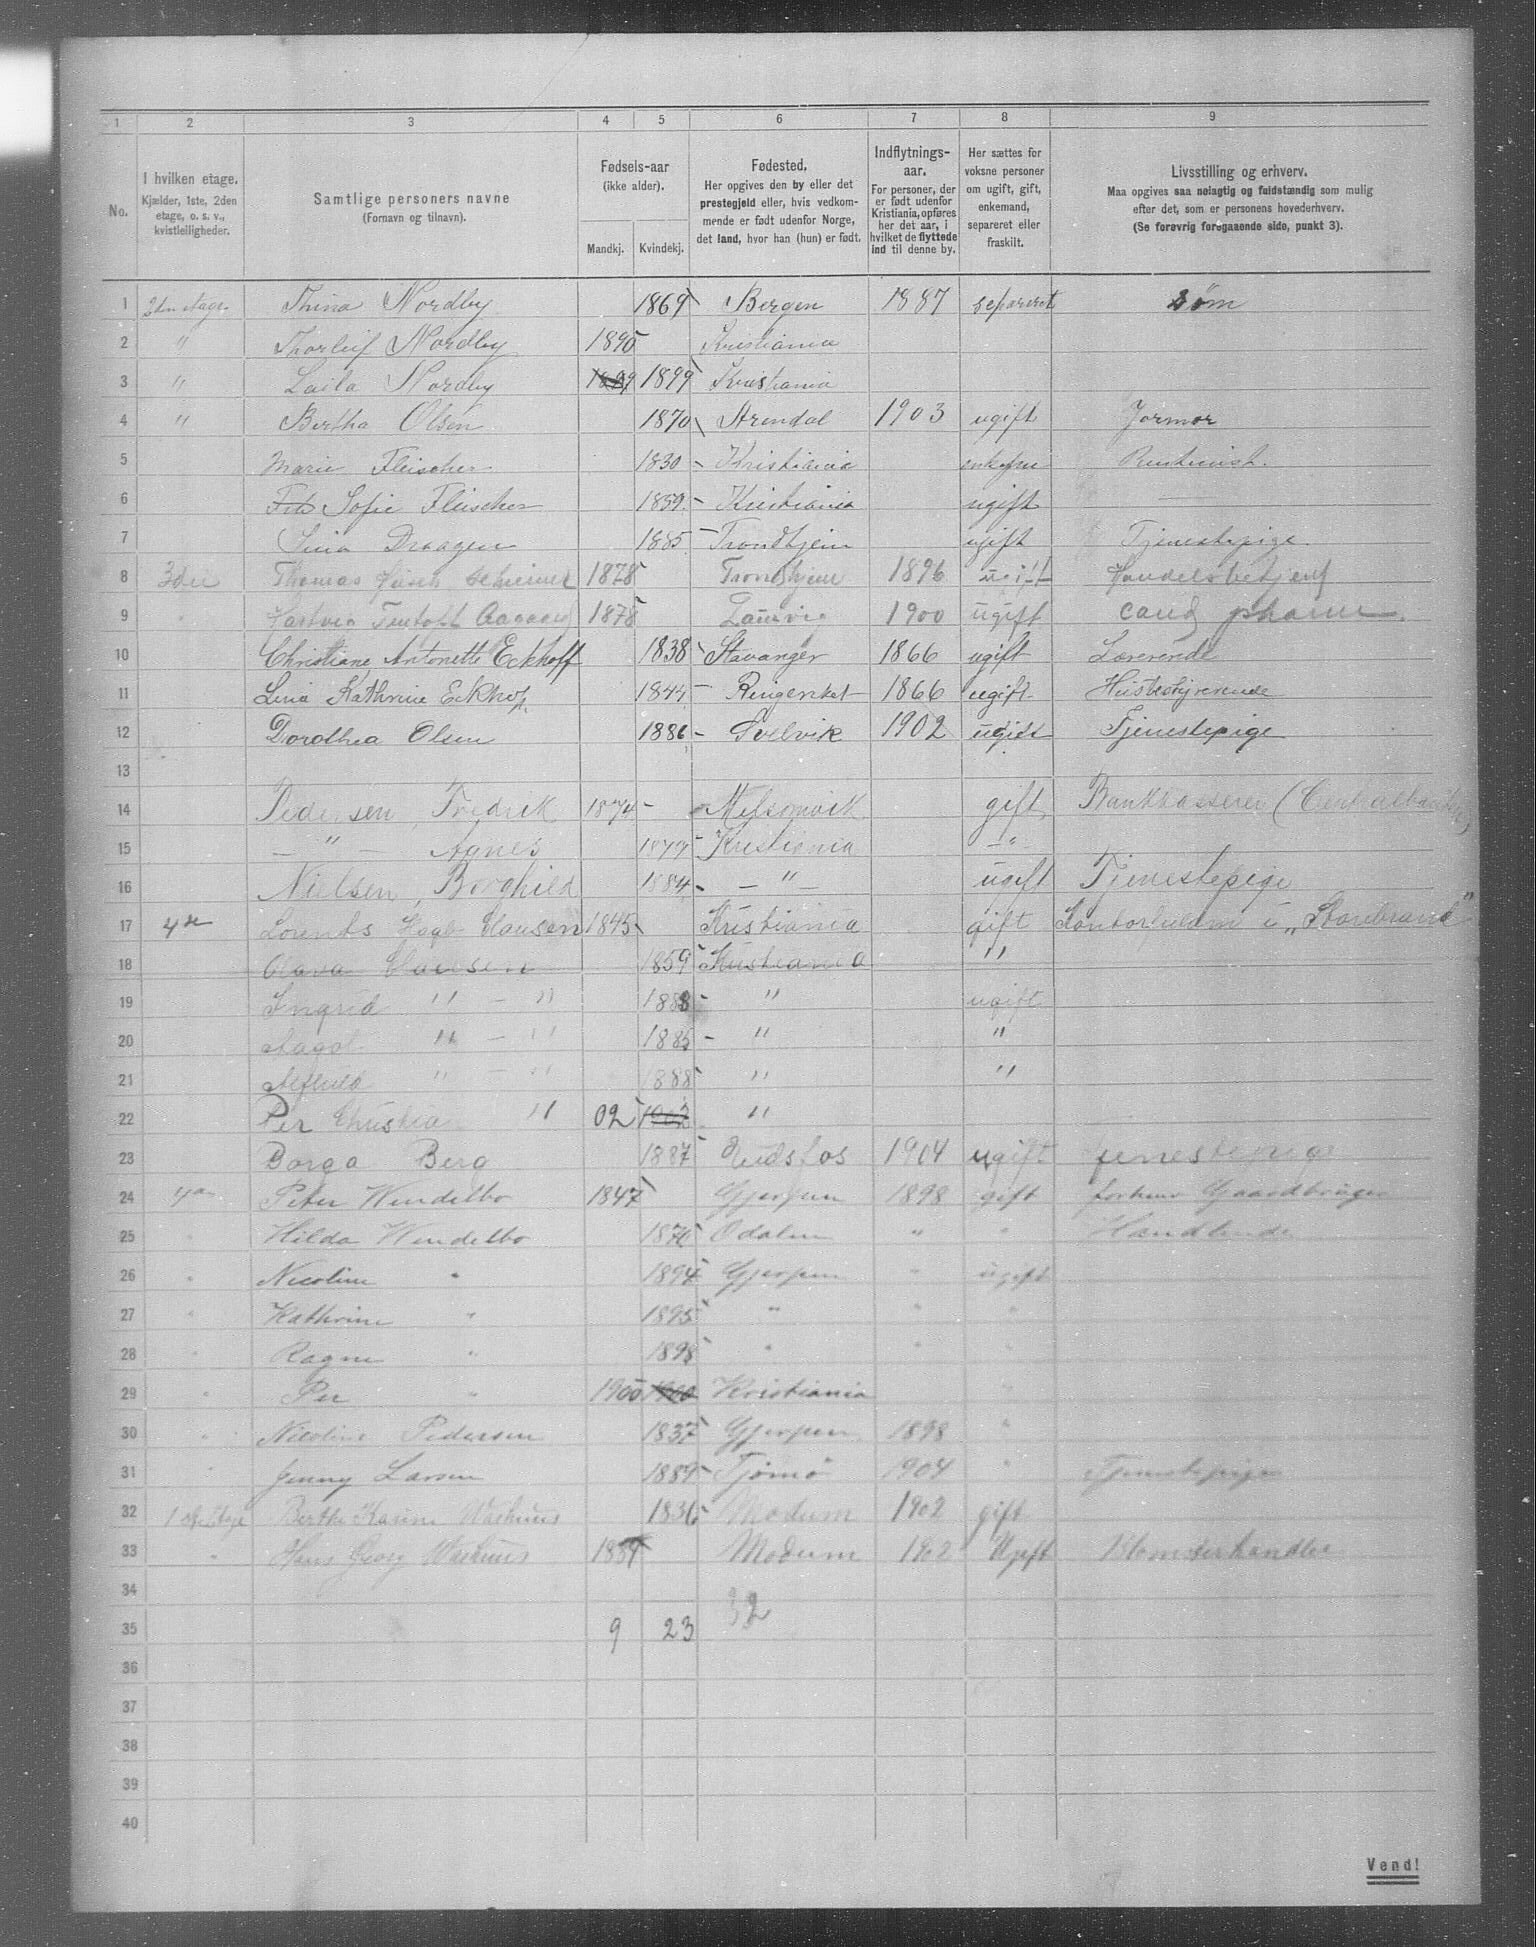 1 2 3 4 5 6 7 8 9
No. I hvilken etage. Kjælder, 1ste, 2den etage, o. s. v., kvistleiligheder. Samtlige personers navne (Fornavn og tilnavn). Fødsels-aar (ikke alder). Mandkj. Kvindekj. Fødested. Her opgives den by eller det prestegjeld eller, hvis vedkommende er født udenfor Norge, det land, hvor han (hun) er født. Indflytnings-aar. For personer, der er født udenfor Kristiania, opføres her det aar, i hvilket de flyttede ind til denne by. Her sættes for voksne personer om ugift, gift, enkemand, separeret eller fraskilt. Livsstilling og erhverv. Maa opgives saa nøiagtig og fuldstændig som mulig efter det, som er personens hovederhverv. (Se forøvrig foregaaende side, punkt 3).
1 2den etage Thina Nordby 1869 Bergen 1887 separeret søm
2 " Thorleif Nordby 1895 Kristiania
3 " Laila Nordby 1899 1899 Kristiania
4 " Bertha Olsen 1870 Arendal 1903 ugift Jormor
5 Marie Fleischer 1830 Kristiania enkefrue
6 Sofie Fleischer 1859 Kristiania ugift —
7 Draagen 1885 Trondhjem ugift Tjenestepige
8 3die Thomas 1878 Trondhjem 1896 ugift Handelsbetjent
9 Hartvig 1878 Laurvig 1900 ugift cand pharm.
10 Christiane Antonette Eckhoff 1838 Stavanger 1866 ugift Lærerende
11 Lina Kathrine Eckhoff 1844 1866 ugift Husbestyrerende
12 Dorothea Olsen 1886 Svelvik 1902 ugift Tjenestepige
13
14 Pedersen, Fredrik 1874 Melsomvik gift Bankkasserer (Centralbanken)
15 — " — Agnes 1879 Kristiania — " —
16 Nielsen, Borghild 1884 — " — ugift Tjenestepige
17 4de Lorents Clausen 1845 Kristiania gift i „Storebrand"
18 Olava Clausen 1859 Kristiania "
19 Ingrid " — " 1883 " ugift
20 " — " 1885 " "
21 " — " 1888 " "
22 Per Christian " 02 1902 "
23 Borga Berg 1887 Eidsfos 1904 ugift jenestepige
24 4de Peter Wendelbo 1847 Gjerpen 1898 gift forhenv Gaardbruger
25 " Hilda Wendelbo 1870 Odalen " " Handlende
26 " Nicoline " 1894 Gjerpen " ugift
27 " Kathrine " 1895 " " "
28 Ragna " 1898 " " "
29 " Per " 1900 1900 Kristiania "
30 " Nicoline Pedersen 1837 Gjerpen 1898 "
31 " Jenny Larsen 1889 Tjømø 1904 " Tjenestepige
32 1ste Etage Berthe Karine 1836 Modum 1902 gift
33 " Hans Georg Modum 1902 Ugift Blomsterhandler
34
35 9 23 32
36
37
38
39
40
Vend!